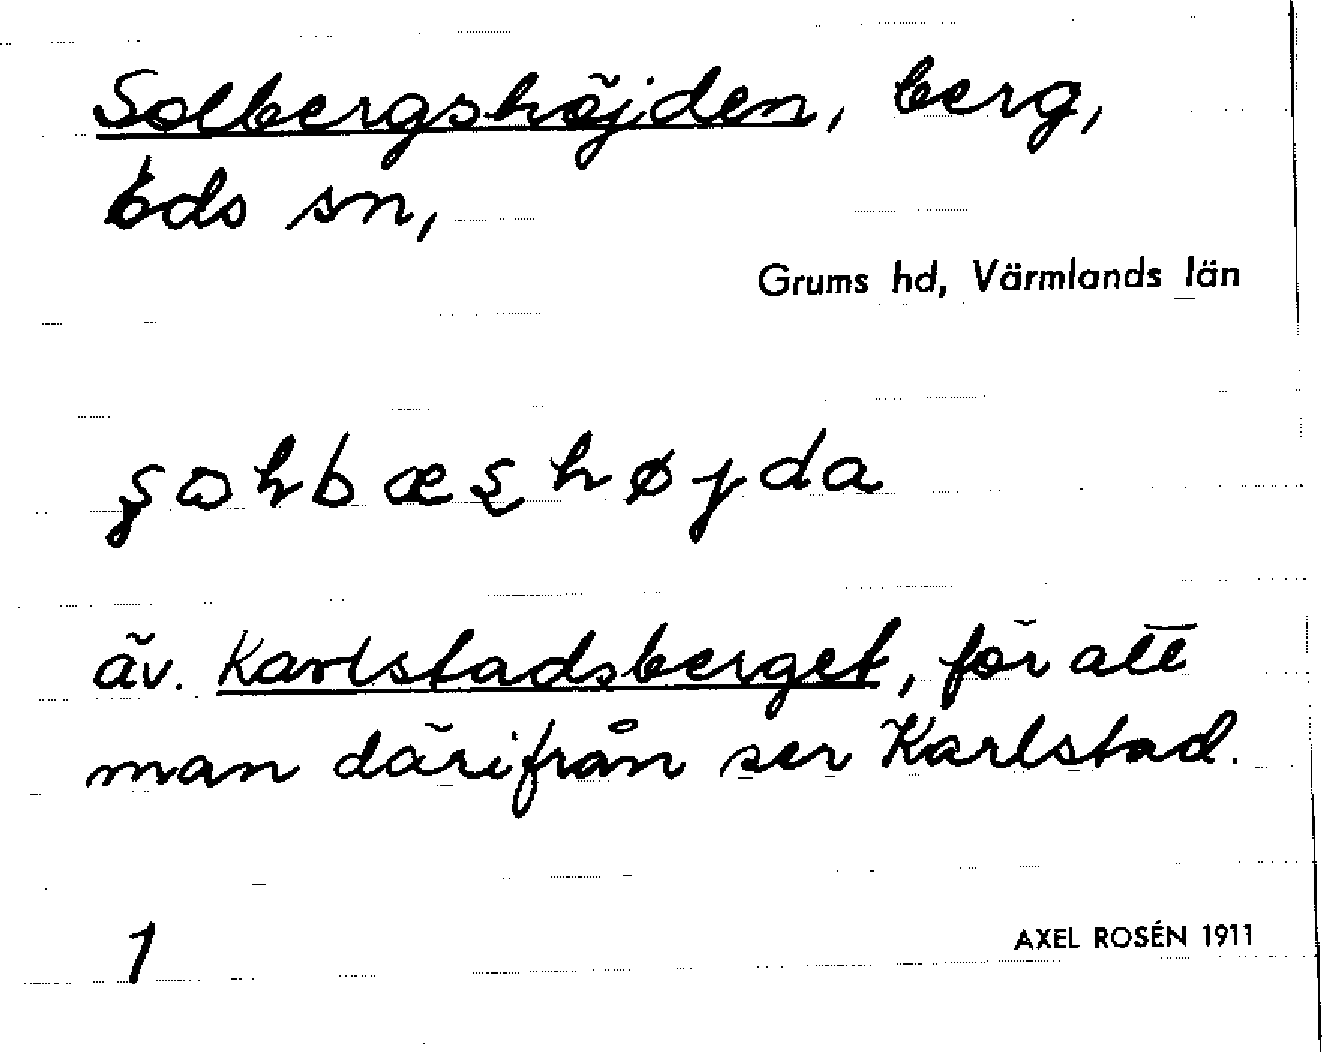 Solbergshöjden, berg,
Eds sn,
Grums hd, Värmlands län
äv. Karlstadsberget, för att
man därifrån ser Karlstad.
1
AXEL ROSÉN 1911